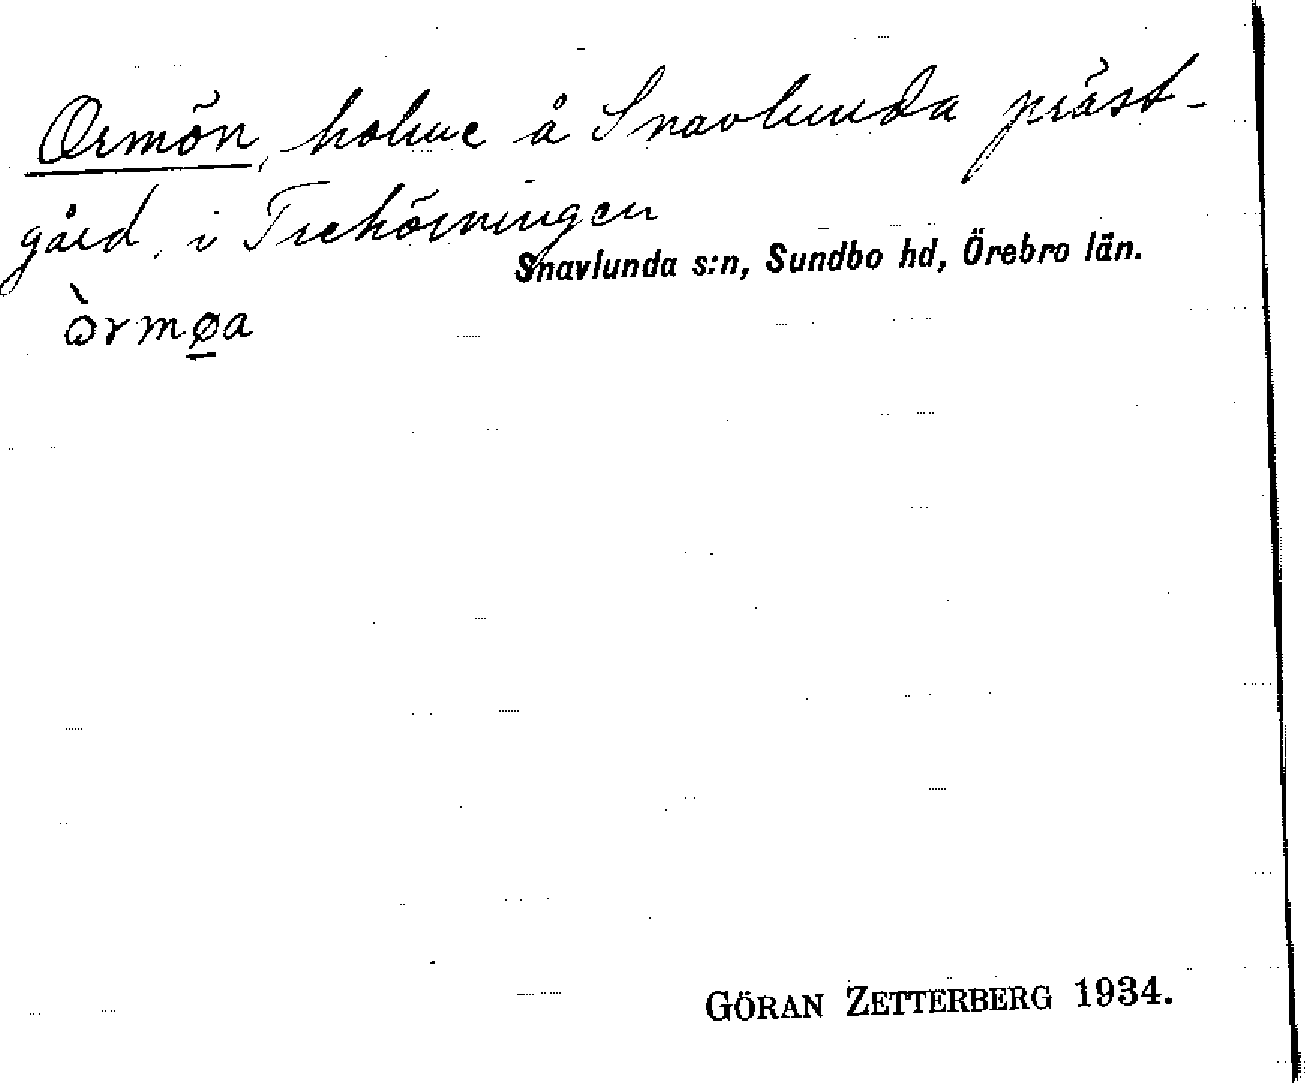 Ormön, holme å Snavlunda präst-
gård, i Trehörningen
Snavlunda s:n, Sundbo hd, Örebro län.
òrmøa
GÖRAN ZETTERBERG 1934.